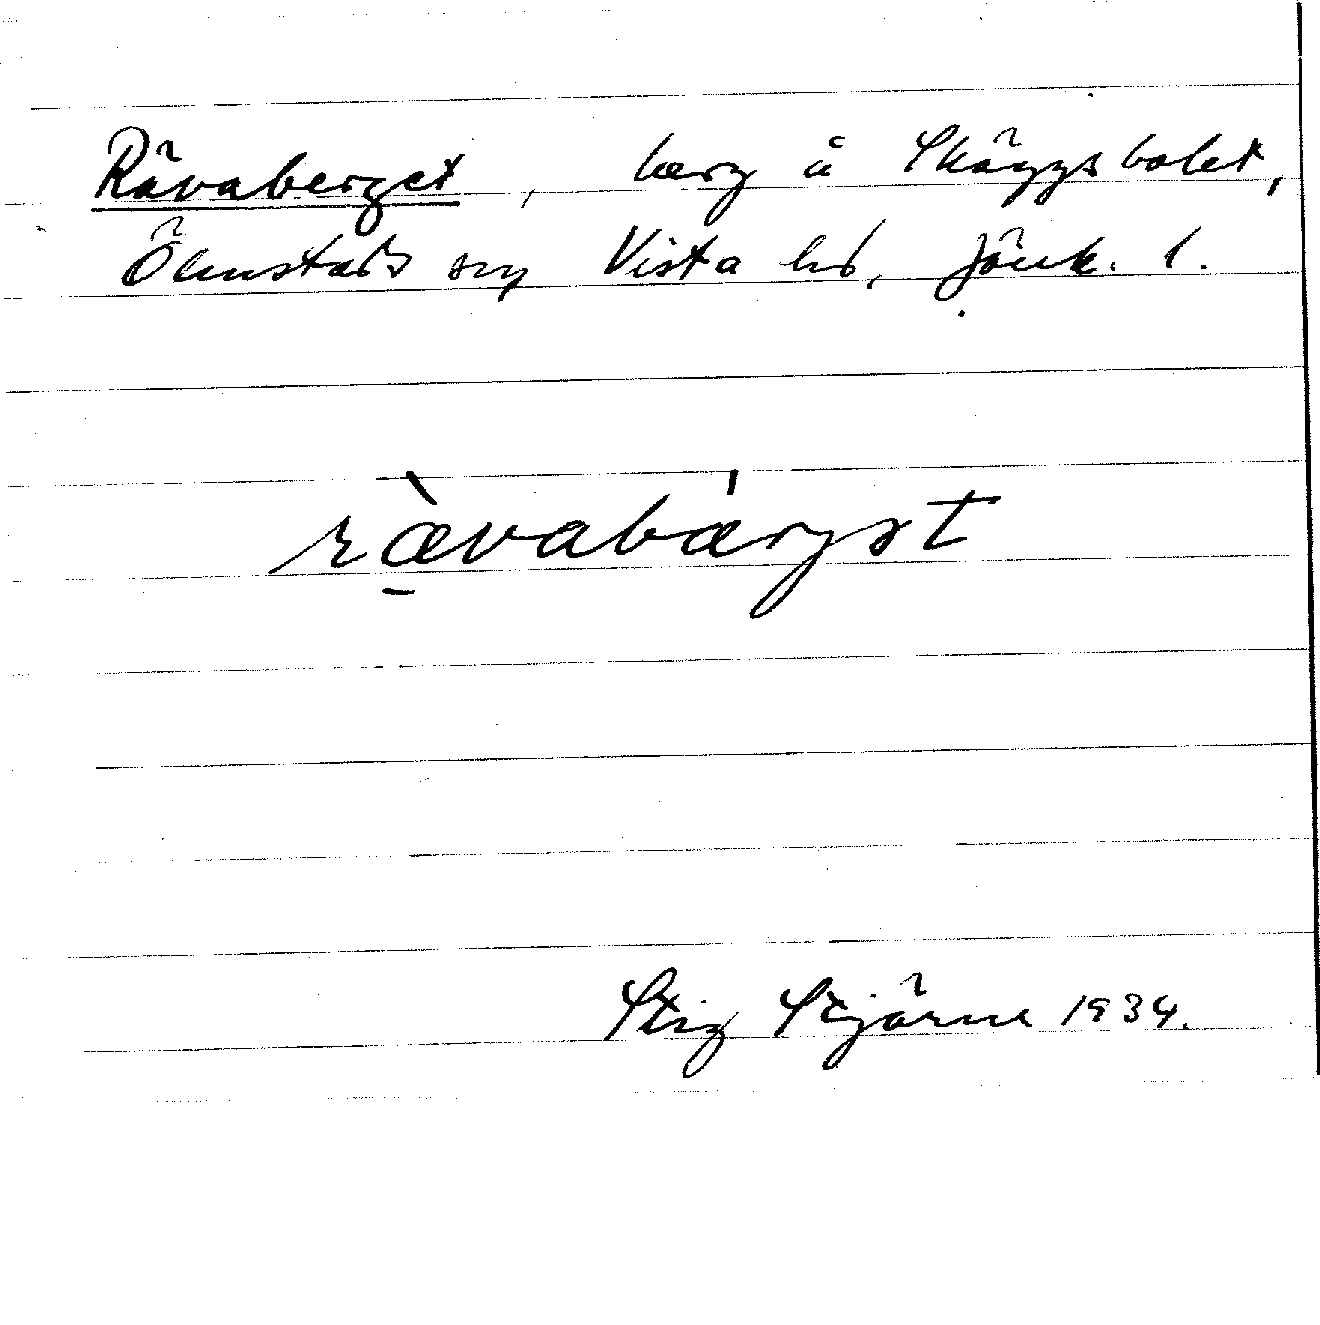 Rävaberget, berg å Skäggsbolet,
Ölmstads sn, Vista hd, Jönk. l.
ræ̀vabǽrgət
Stig Stjärne 1934.